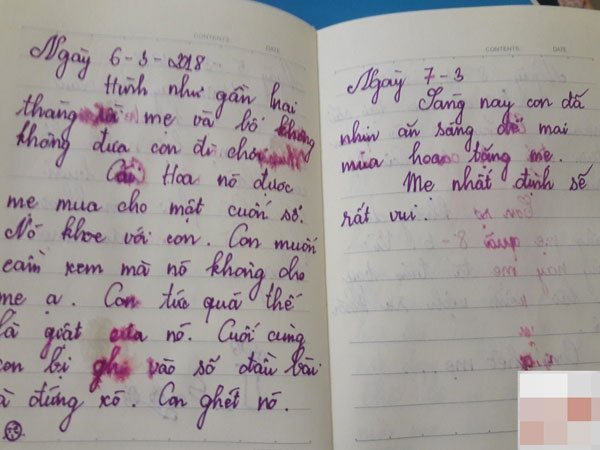 CONTENTS: DATE:
Ngày 6-3-2018
Hình như gần hai
tháng rồi mẹ và bố không
không đưa con đi chơi
Cái Hoa nó được
mẹ mua cho một cuốn sổ.
Nó khoe với con. Con muốn
cầm xem mà nó không cho
mẹ ạ. Con tức quá thế
là giật của nó. Cuối cùng
con bị ghi vào sổ đầu bài
và đứng xó. Con ghét nó.
CONTENTS: DATE:
Ngày 7-3
Sáng nay con đã
nhịn ăn sáng để mai
mua hoa tặng mẹ.
Mẹ nhất định sẽ
rất vui.